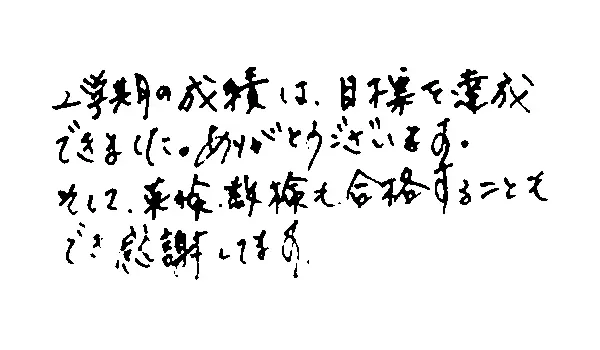 2学期の成績は、目標を達成
できました。ありがとうございます。
そして、英検、数検も、合格することも
でき感謝してます。